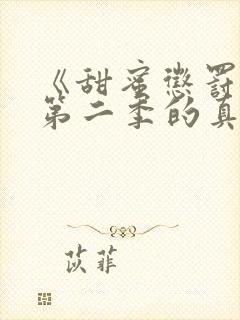 《甜蜜懲罰
第二季的真
苡菲